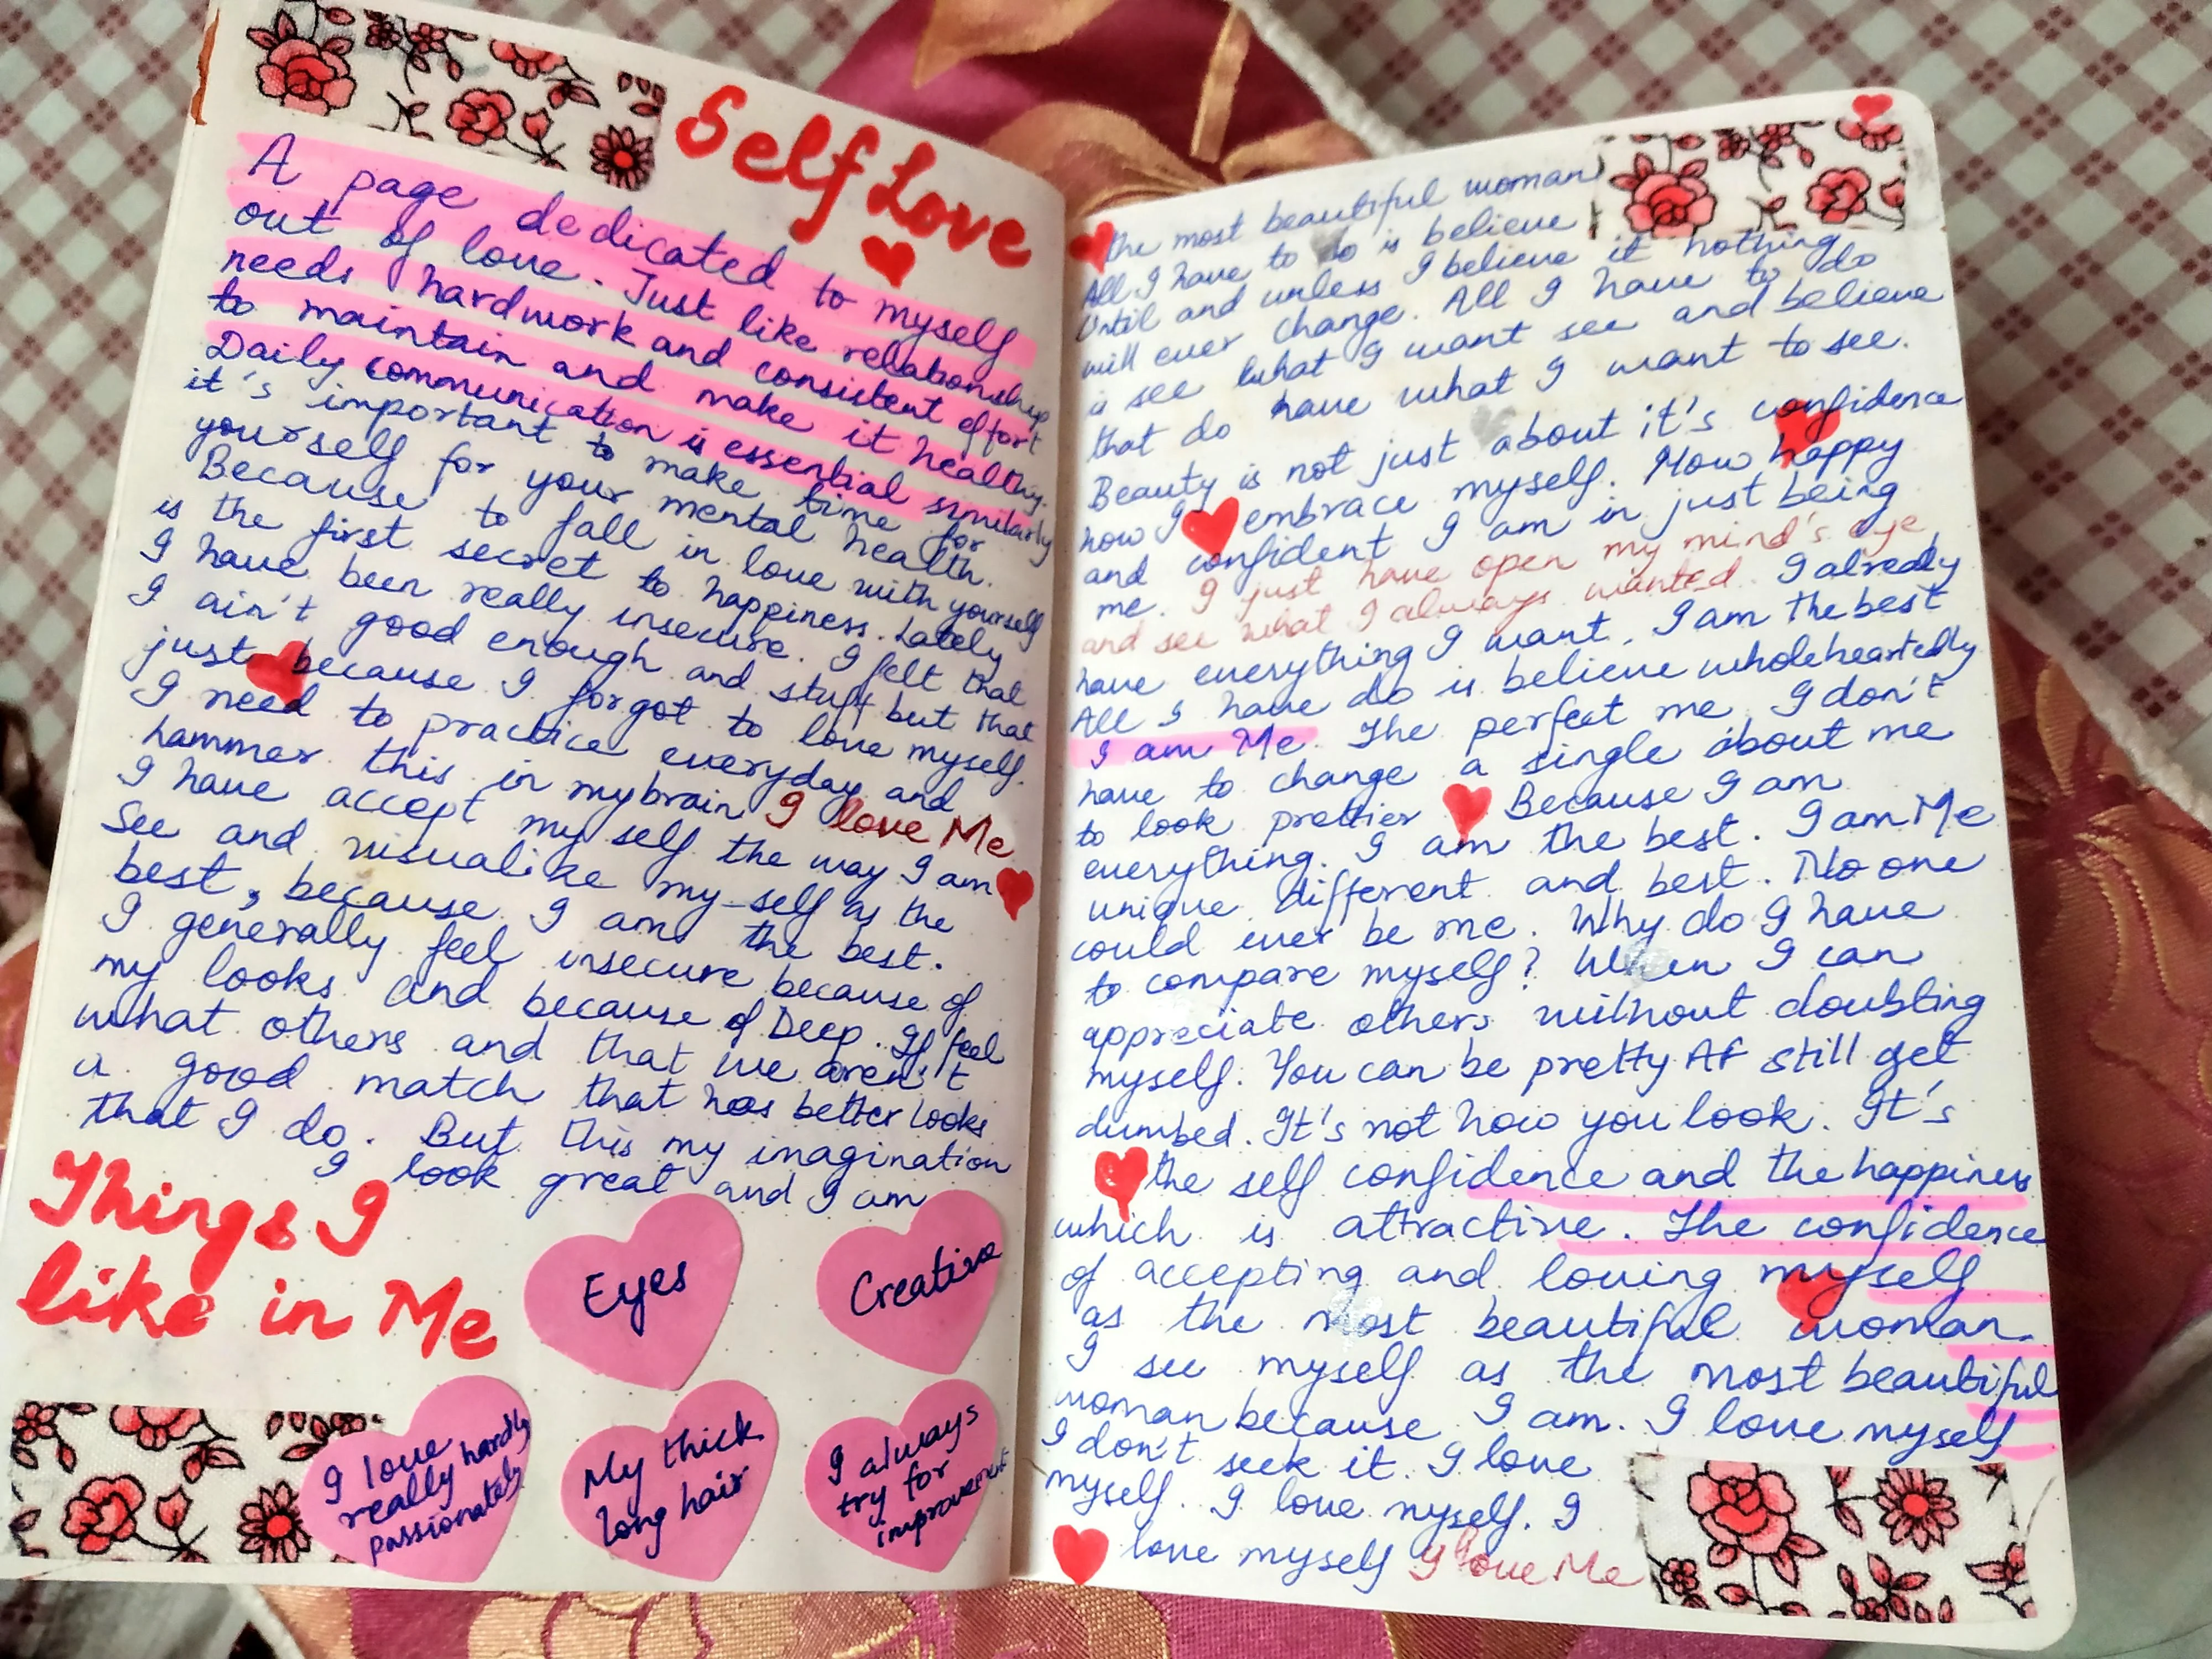 Self Love
A page dedicated to myself
out of love. Just like relationship
needs hardwork and consistent effort
to maintain and make it healthy.
Daily communication is essential similarly
it's important to make time for
yourself for your mental health.
Because to fall in love with yourself
is the first secret to happiness. Lately
I have been really insecure. I felt that
I ain't good enough and stuff but that
just because I forgot to love myself.
I need to practice everyday and
hammer this in my brain I love Me
I have accept my self the way I am
See and visualike my-self as the
best, because I am the best.
I generally feel insecure because of
my looks and because of Deep. If feel
what others and that we aren't
a good match that has better looks
that I do. But this my imagination
I look great and I am
Things I
like in Me
Eyes
Creative
I love
really hardly
really
passionately
My thick
long hair
I always
try for
improvement
the most beautiful woman
All I have to do is believe
Until and unless I believe it nothing
will ever change. All I have to do
is see what I want see and believe
that do have what I want to see.
Beauty is not just about it's confidence
how I embrace myself. How happy
and confident I am in just being
me. I just have open my mind's eye
and see what I always wanted. I already
have everything I want. I am the best
All I have do is believe wholeheartedly
I am Me. The perfect me I don't
have to change a single about me
to look prettier Because I am
everything. I am the best. I am Me
unique different and best. No one
could ever be me. Why do I have
to compare myself? When I can
appreciate others without doubting
myself. You can be pretty AF still get
dumbed. It's not how you look. It's
the self confidence and the happiness
which is attractive. The confidence
of accepting and loving myself
as the most beautiful woman.
I see myself as the most beautiful
woman because I am. I love myself
I don't seek it. I love
myself. I love myself. I
love myself I love Me